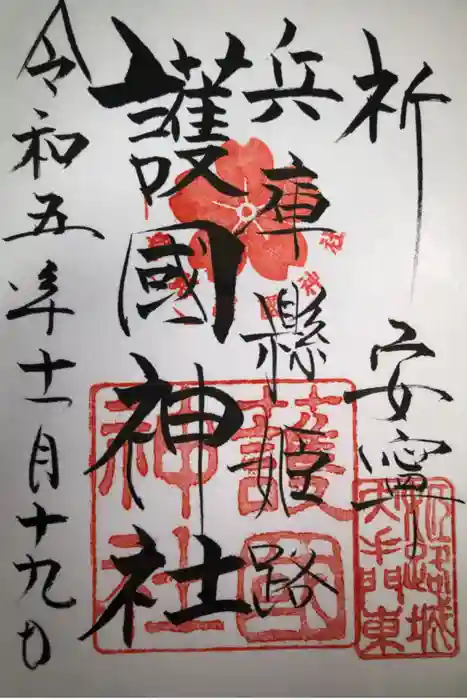 祈 安寧
兵庫縣姫路
護國神社
令和五年十一月十九日
護國
神社
姫路城
大手門東